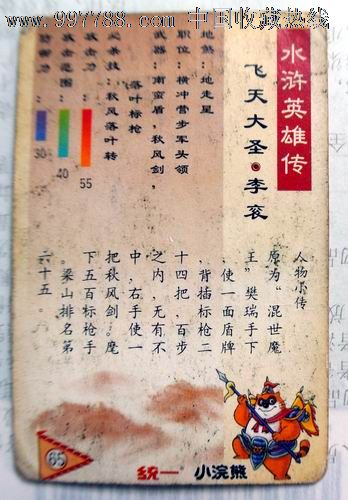 www.997788.com 中国收藏热线
水浒英雄传
飞天大圣●李衮
地煞:地走星
职位:横冲营步军头领
武器:南蛮盾,秋风剑,
落叶标枪
杀技:秋风落叶转
击力:
55
击范围:
40
30
人物小传
原为“混世魔
王”樊瑞手下
,使一面盾牌
,背插标枪二
十四把,百步
之内,无有不
中,右手使一
把秋风剑。麾
下五百标枪手
。梁山排名第
六十五。
65
统一 小浣熊